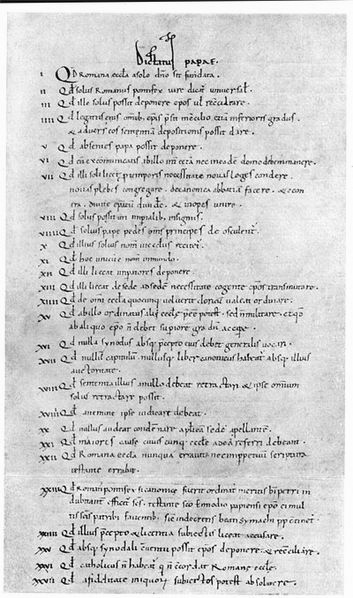 Dictatus papae.
I Qd Romana eccla a solo dno sit fundata.
II Qd solus Romanus pontifex iure dicat universal.
III Qd ille solus possit deponere epos vl reciliare.
IIII Qd legatus eius omib. epis psit in cilio etia inferioris gradus.
& adversus eos sententia depositionis possit dare.
V Qd absentes papa possit deponere.
VI Qd cu excommunicatis ab illo int cetera nec in eade domo debem manere.
VII Qd illi soli licet p temporis necessitate novas leges condere
novas plebes congregare. de canonica abbatia facere. & econ
tra. divite epatu divide. & inopes unire.
VIII Qd solus possit uti impialib. insigniis.
VIIII Qd solius pape pedes oms principes deosculent.
X Qd illius solius nom in ecclis recitet.
XI Qd hoc unicu e nom in mundo.
XII Qd illi liceat impatores deponere.
XIII Qd illi liceat de sede ad sede necessitate cogente epos transmutare.
XIIII Qd de omi eccla quocunq voluerit clericu valeat ordinare.
XV Qd ab illo ordinatus alii eccle pee potest. sed n militare. et qd
ab aliquo epo n debet supiore gradu accipe.
XVI Qd nulla synodus absq pcepto eius debet generalis vocari.
XVII Qd nullu capitulu nullusq liber canonicus habeat absq illius
auctoritate.
XVIII Qd sententia illius a nullo debeat retractari & ipse omniu
solus retractare possit.
XVIIII Qd a nemine ipse iudicari debeat.
XX Qd nullus audeat condemnare aplica sede apellante.
XXI Qd maiores cause cuiuscunq eccle ad ea referri debeant.
XXII Qd Romana eccla nunqua erravit nec imppetuu scriptura
testante errabit.
XXIII Qd Romanus pontifex si canonice fuerit ordinat meritis b petri in
dubitant effici scs. testante sco Ennodio papiensi epo ei mul
tis scis patrib faventib. sic in decretis beati Symachi pp continet.
XXIIII Qd illius pcepto & licentia subiectis liceat accusare.
XXV Qd absq synodali cventu possit epos deponere & reciliare.
XXVI Qd catholicus n habeat q n cordat Romane eccle.
XXVII Qd a fidelitate iniquoru subiectos potest absolvere.